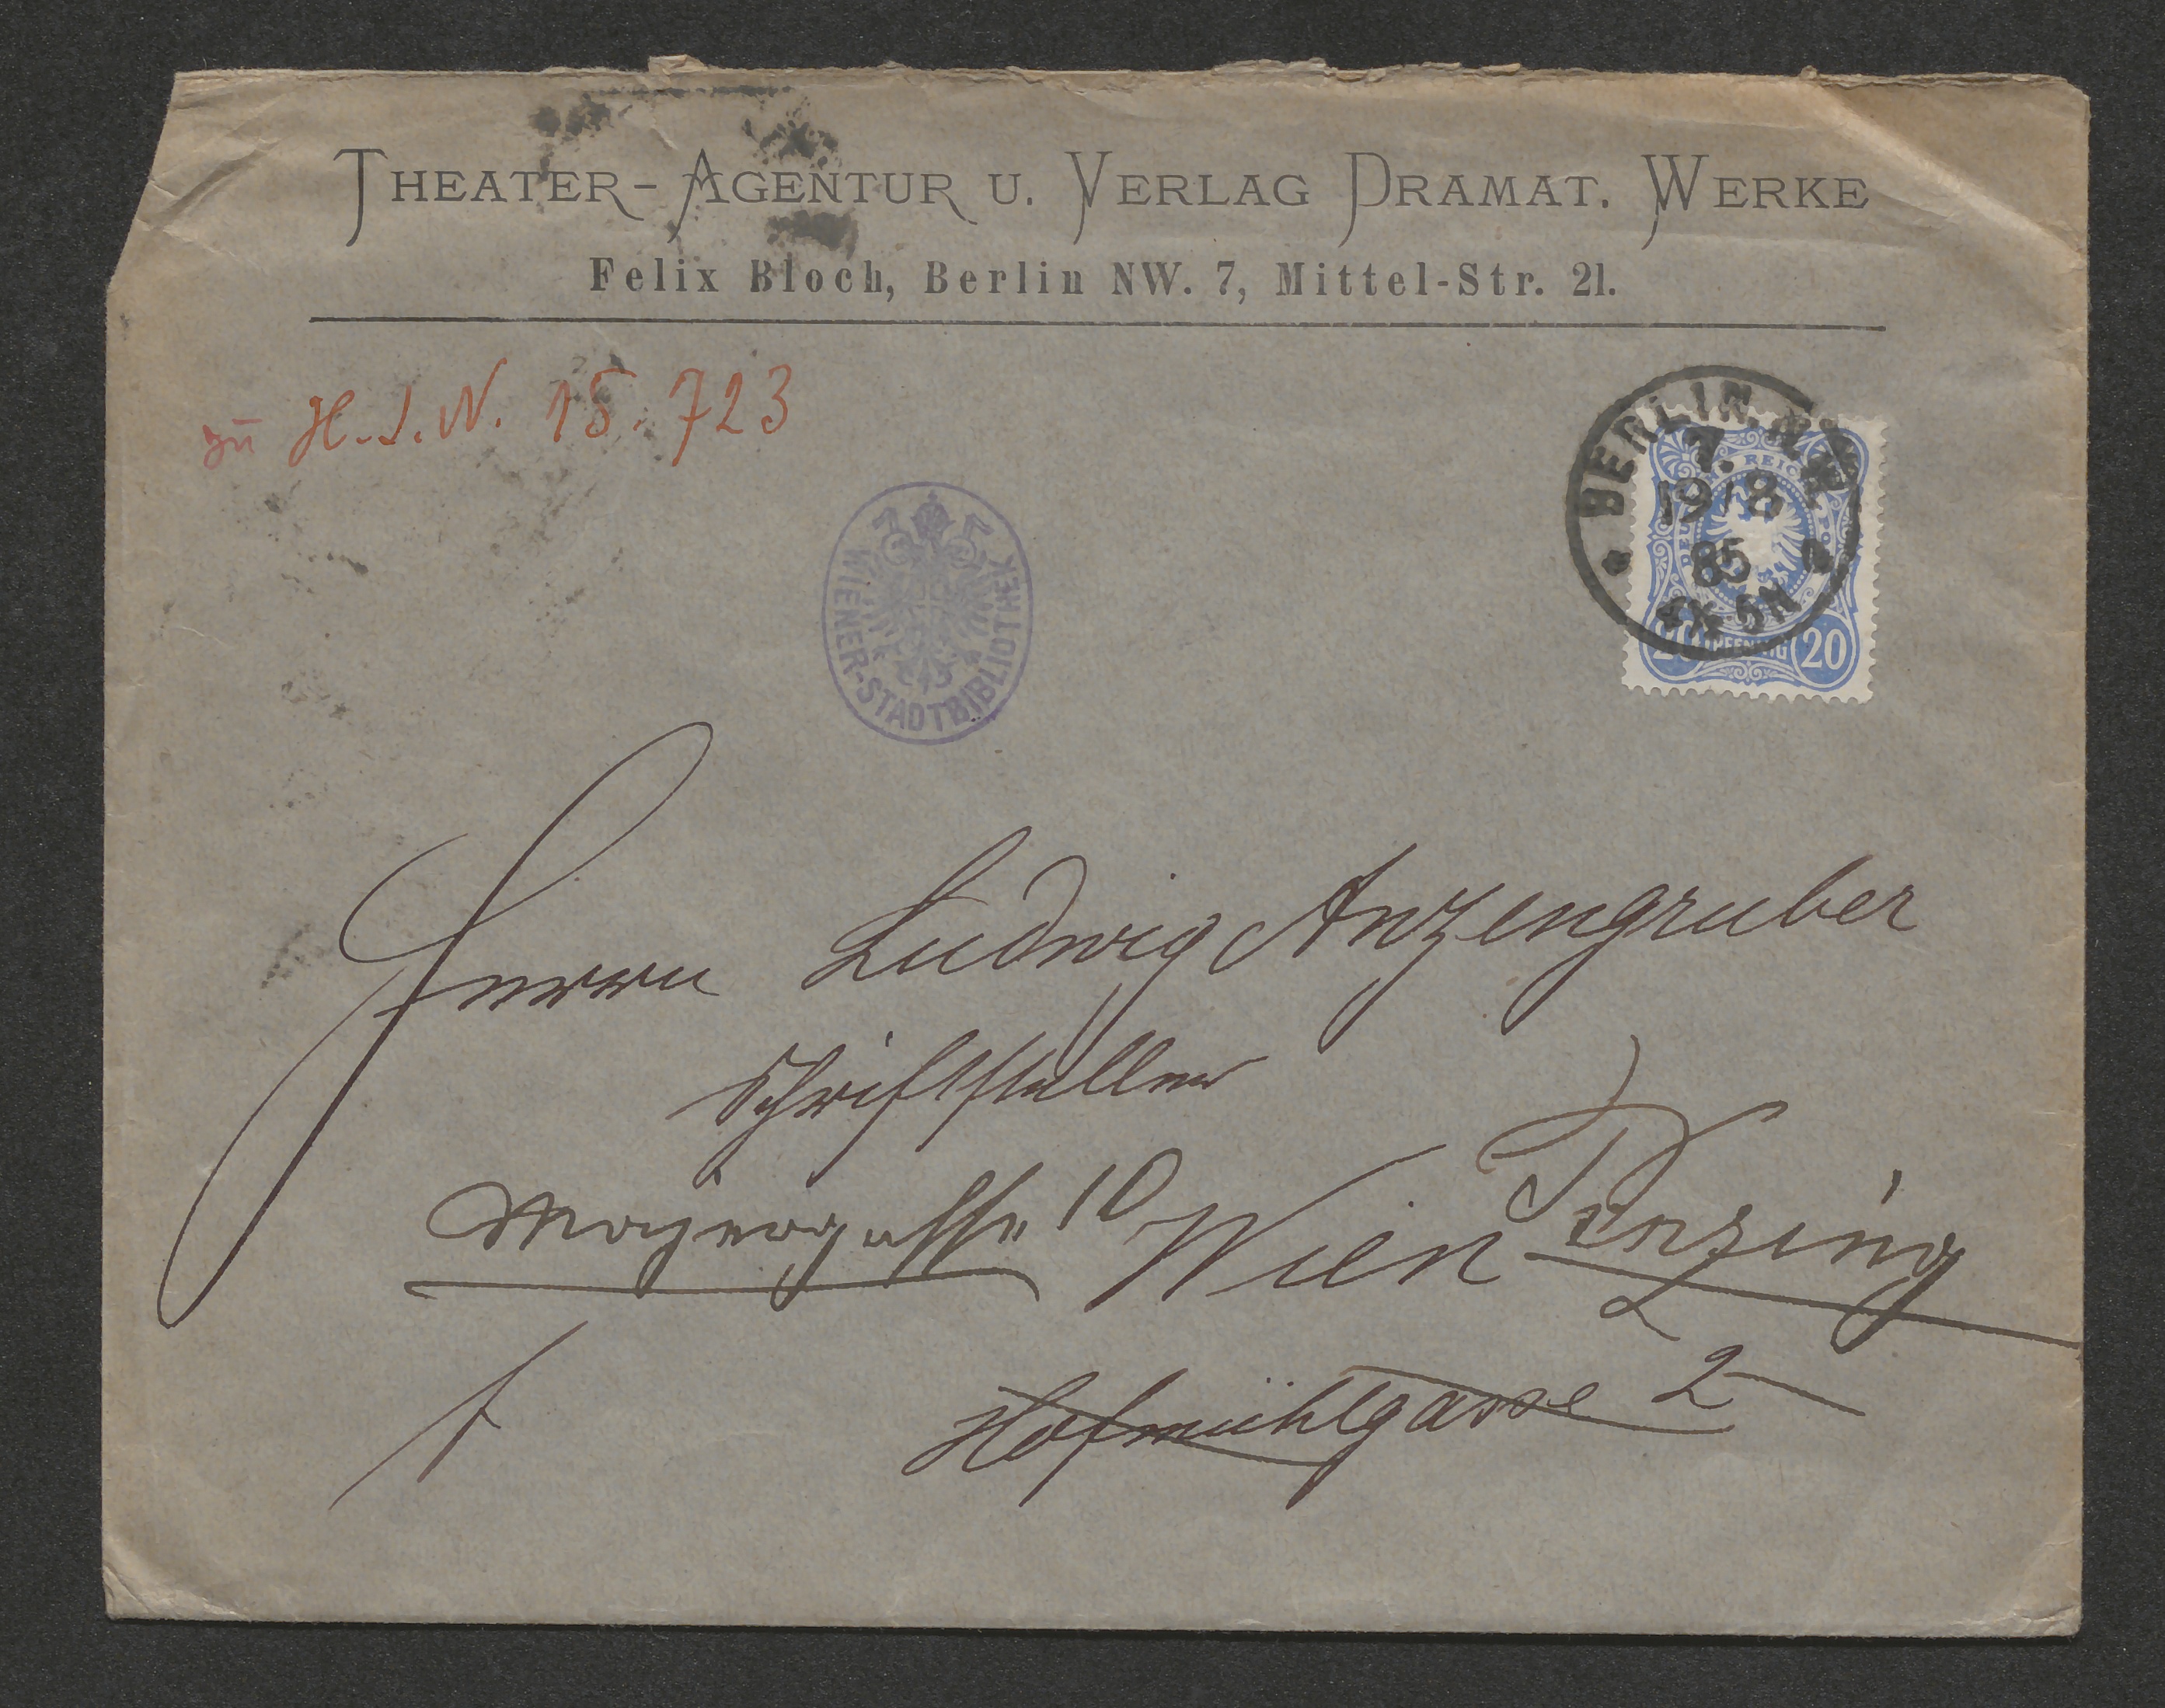 THEATER-AGENTUR U. VERLAG DRAMAT. WERKE
Felix Bloch, Berlin NW. 7, Mittel-Str. 21.
zu H.I.N. 15.723
BERLIN. N.W.
7.
19/8
85
5N
DEUTSCHE REICHS-POST
20 PFENNIG 20
WIENER-STADTBIBLIOTHEK
Herrn Ludwig Anzengruber
Schriftsteller
Mayergasse 10 Wien Penzing
Hofmühlgasse 2